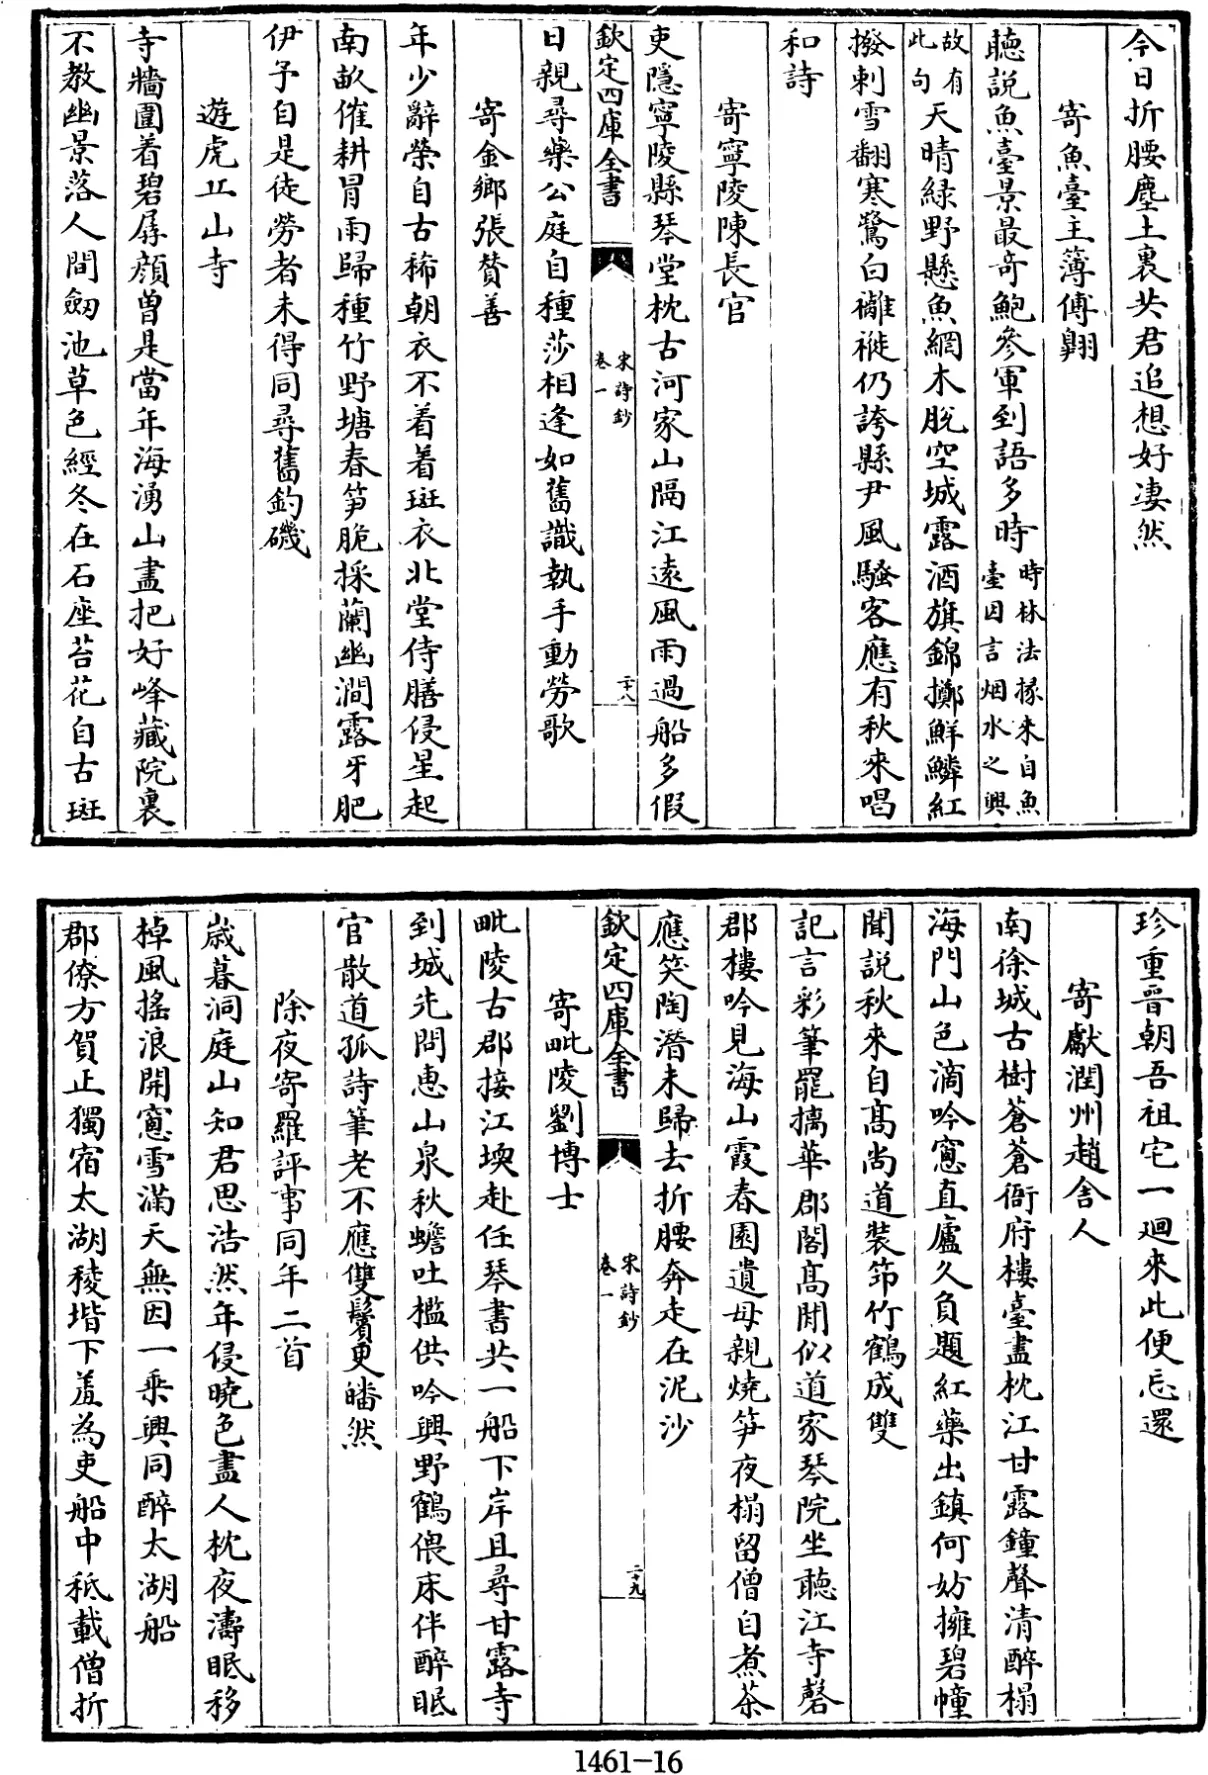 今日折腰塵土裏共君追想好凄然
寄魚臺主簿傅翺
聽説魚臺景最奇鮑參軍到語多時時林法掾來自魚臺因言烟水之興
故有此句天晴綠野懸魚網木脱空城露酒旗錦擲鮮鱗紅
撥刺雪翻寒鷺白䙰褷仍誇縣尹風騷客應有秋來唱
和詩
寄寧陵陳長官
吏隱寧陵縣琴堂枕古河家山隔江遠風雨過船多假
欽定四庫全書
宋詩鈔
卷一
二十八
日親尋藥公庭自種莎相逢如舊識執手動勞歌
寄金鄉張贊善
年少辭榮自古稀朝衣不着着斑衣北堂侍膳侵星起
南畝催耕冒雨歸種竹野塘春笋脆採蘭幽澗露牙肥
伊予自是徒勞者未得同尋舊釣磯
遊虎丘山寺
寺牆圍着碧孱顔曽是當年海湧山盡把好峰藏院裏
不教幽景落人間劔池草色經冬在石座苔花自古斑
珍重晉朝吾祖宅一廻來此便忘還
寄獻潤州趙舍人
南徐城古樹蒼蒼衙府樓臺盡枕江甘露鐘聲清醉榻
海門山色滴吟窻直廬久負題紅藥出鎮何妨擁碧幢
聞説秋來自髙尚道裝筇竹鶴成雙
記言彩筆罷摛華郡閣髙閒似道家琴院坐聽江寺磬
郡樓吟見海山霞春園遺母親燒笋夜榻留僧自煮茶
應笑陶潛未歸去折腰奔走在泥沙
欽定四庫全書
宋詩鈔
卷一
二十九
寄毗陵劉博士
毗陵古郡接江堧赴任琴書共一船下岸且尋甘露寺
到城先問惠山泉秋蟾吐檻供吟興野鶴偎床伴醉眠
官散道孤詩筆老不應雙鬢更皤然
除夜寄羅評事同年二首
歳暮洞庭山知君思浩然年侵曉色盡人枕夜濤眠移
棹風搖浪開窻雪滿天無因一乗興同醉太湖船
郡僚方賀正獨宿太湖稜堦下羞為吏船中秪載僧折
1461-16